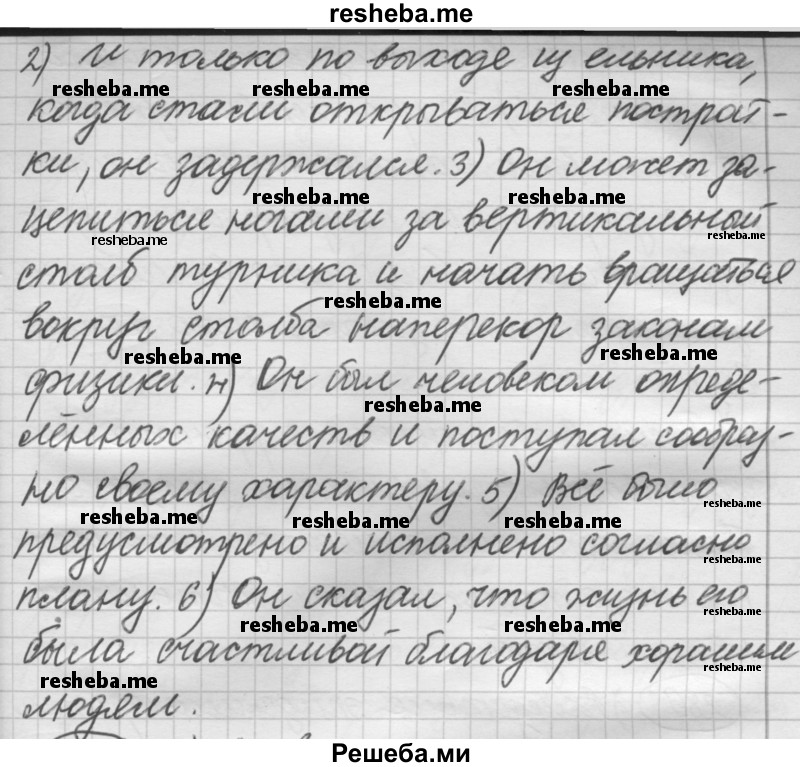 resheba.me
2) И только по выходе из ельника,
resheba.me resheba.me resheba.me
когда стали открываться построй-
ки, он задержался. 3) Он может за-
resheba.me resheba.me
цепиться ногами за вертикальной
resheba.me resheba.me
столб турника и начать вращаться
resheba.me
вокруг столба наперекор законам
resheba.me resheba.me
физики. 4) Он был человеком опреде-
resheba.me
лённых качеств и поступал сообраз-
но своему характеру. 5) Всё было
resheba.me
resheba.me resheba.me resheba.me
предусмотрено и исполнено согласно
resheba.me
плану. 6) Он сказал, что жизнь его
resheba.me
resheba.me resheba.me
была счастливой благодаря хорошим
resheba.me
resheba.me
людям.
Решеба.ми